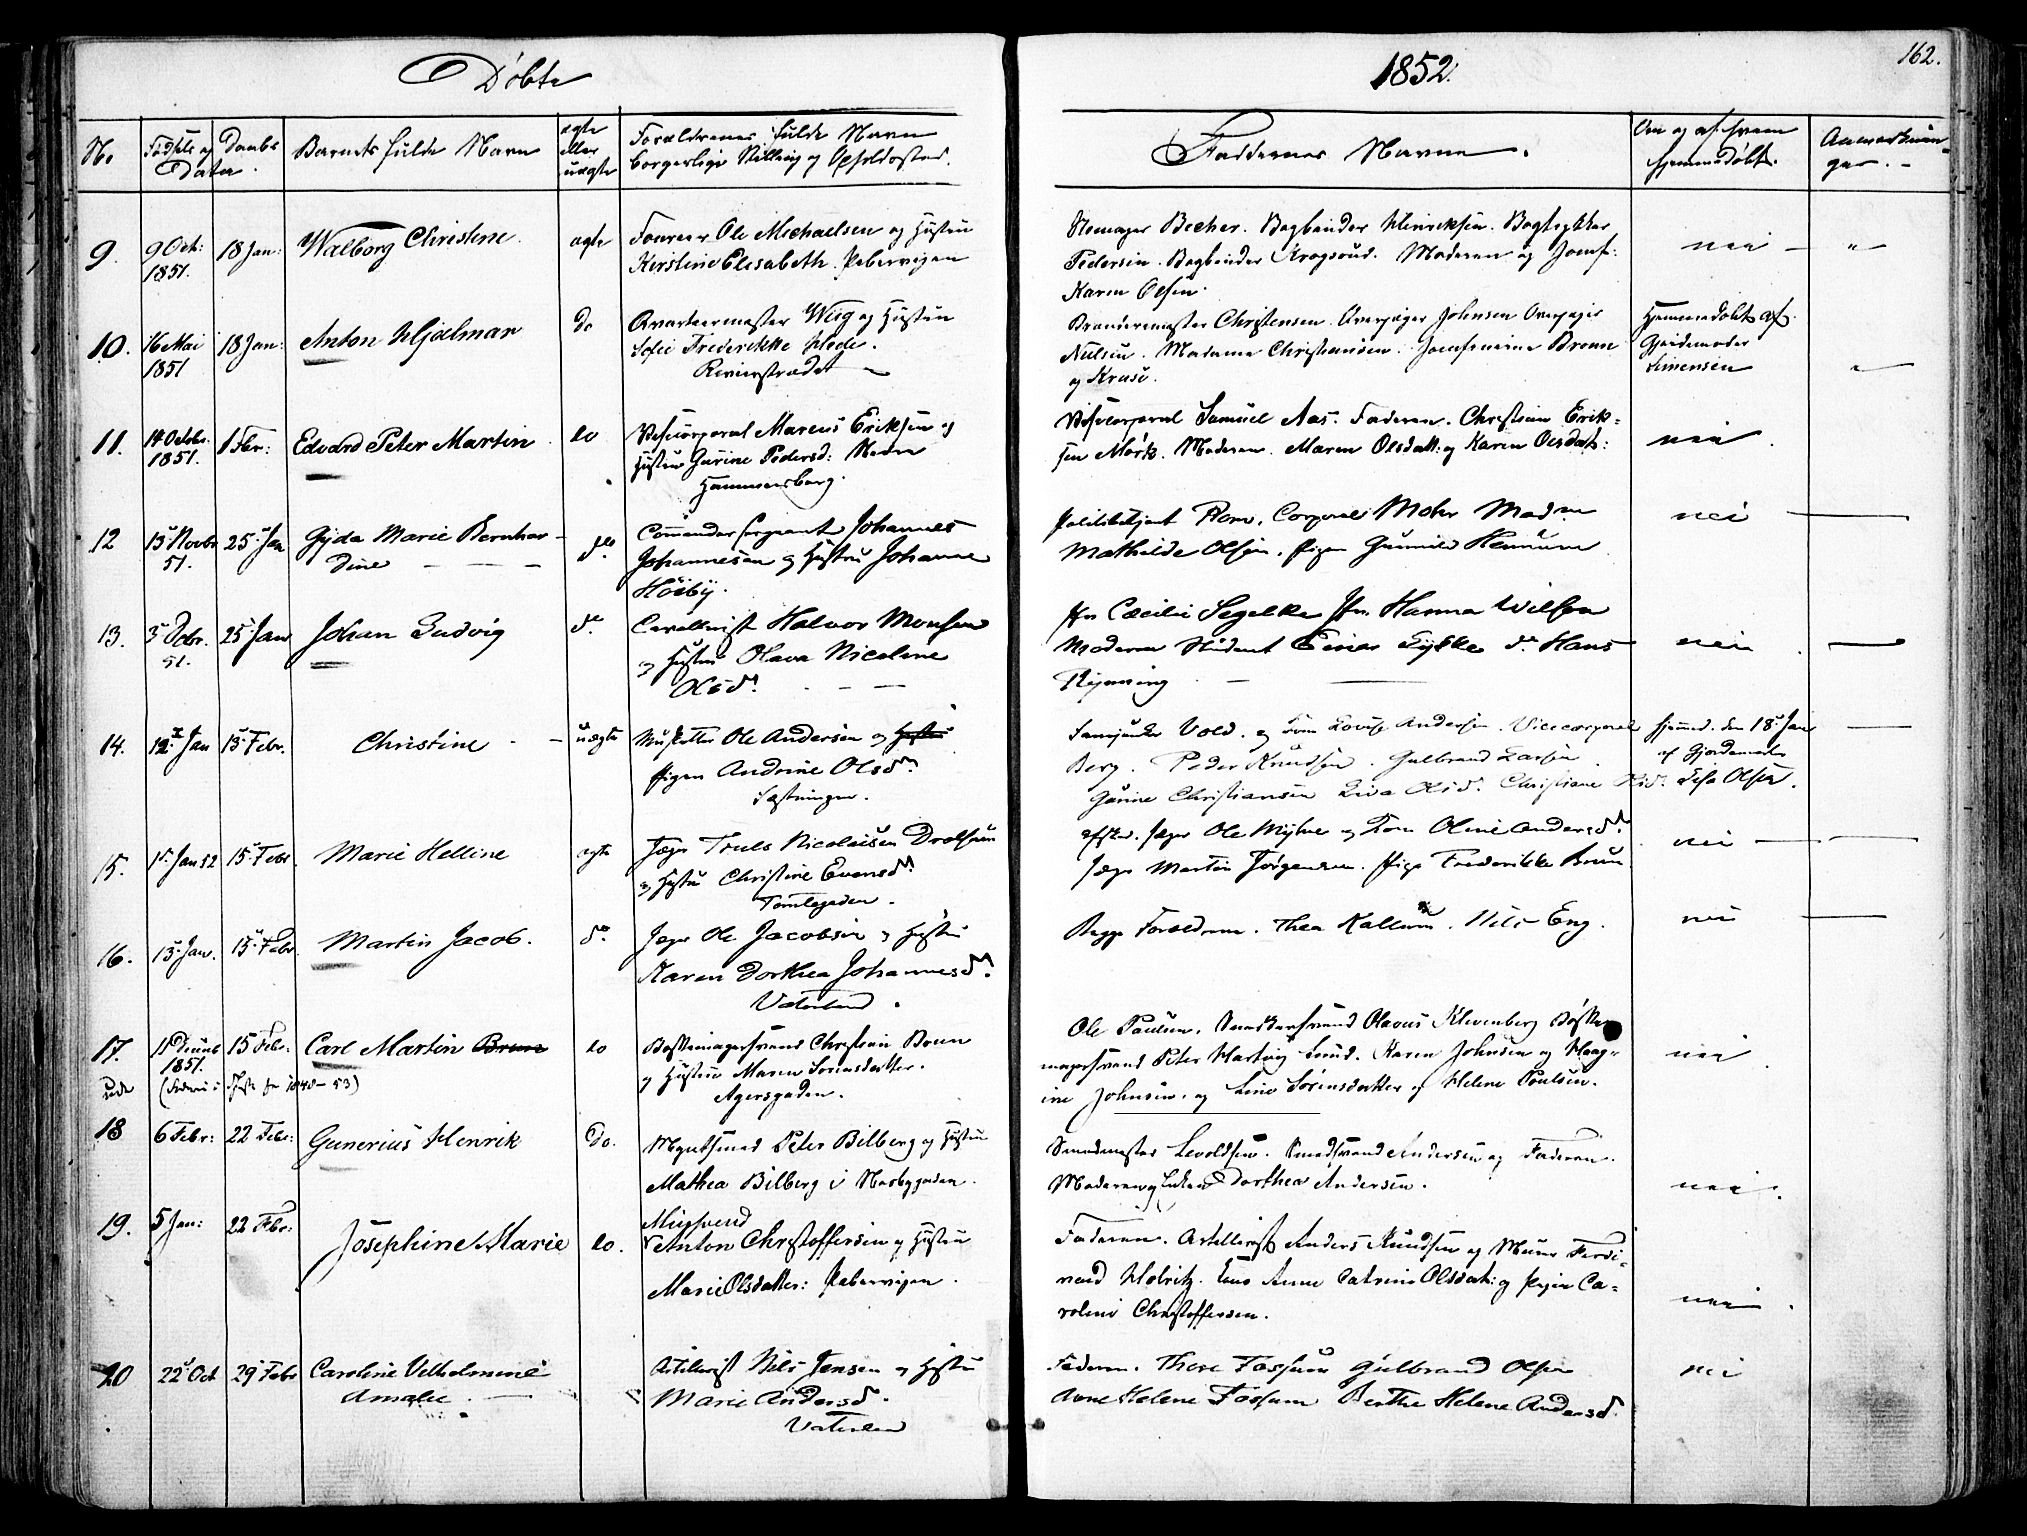 Døbte
1852.
162.
No
Fødsels og Daabs
Data.
Barnets fulde Navn
ægte
eller
uægte
Forældrenes fulde Navn
borgerlige Stilling og Opholdssted.
Faddernes Navne.
Om og af hvem
hjemmedøbt.
Anmærknin-
ger.
9.
9 Oct:
1851.
18 Jan:
Walborg Christine.
ægte
Ole Michaelsen og Hustru
Kirstine Elisabeth. Pebervigen
Becher. Bogbinder Henriksen. Bogtrykker
Pedersen. Bogbinder Krogsrud. Moderen og Jomf:
Karen Olsen.
nei
10.
16 Mai
1851
18 Jan:
Anton Hjalmar
do
Qvarteermester Wiig og Hustru
Sofie Frederikke
Revierstrædet
Brandermester Christensen. Overjæger Johnsen Overjæger
Nielsen. Madame Christiansen. Jomfruerne Brown
og Kruse.
Hjemmedøbt af
Gjordemoder
Simensen
11.
14 Octobr.
1851.
1 Febr:
Edvard Peter Martin
do
Vicecorporal Marcus Eriksen og
Hustru Gurine Pedersd:
Hammersborg.
Vicecorporal Samuel Aas. Faderen. Christian Erik-
sen Mørk. Moderen. Maren Olsdatt: og Karen Olsdatt:
nei
12
13 Novbr
51.
25 Jan
Gyda Marie Bernhar-
dine
do.
Commandersergeant Johannes
Johannesen og Hustru Johanne
Høiby.
Politibetjent Corporal Mohr Madm
Mathilde Olsen. Pigen Gunnild
nei
13.
3 Debr.
51.
25 Jan
Johan Ludvig
do.
Cavallerist Halvor Monsen
og Hustru Olava Nicoline
Olsd.
Jfr Cæcilie Segelke Jfr. Hanna Wilson
Moderen Student Einar Lykke do. Hans
nei
14.
12 Jan
15 Febr.
Christine
uægte
Musketter Ole Andersen og Hustru
Pigen Andrine Olsdt.
Fæstningen.
Vold. og Louise Andersen. Vicecorporal
Berg. Peder Knudsen. Gulbrand Larsen.
Gurine Christiansen Lina Olsd. Christiane Olsd.
hjemmd. den 18 Jan
af Gjordemoder
Lisa Olsen.
15.
1 Jan 52
15 Febr.
Marie Helline
ægte
Jæger Truls Nicolaisen Drolsum
og Hustru Christine Evensdt.
Tomtegaden.
afsked. Jæger Ole Myhre og Kone Oline Andersdt.
Jæger Martin Jørgensen. Pige Frederikke Brun
nei
16.
13 Jan.
15 Febr.
Martin Jacob.
do.
Jæger Ole Jacobsen og Hustru
Karen Dorthea Johannesdt.
Vaterland.
Begge Forældrene. Thea Kallum. Nils Eng.
nei
17.
11 Decemb
1851.
15 Febr:
Carl Martin Brun
do
Bøssemagersvend Christian Brun
og Hustru Maren Sørensdatter.
Agersgaden.
Ole Paulsen. Snedkersvend Olavus Klevenberg Bøsse-
magersvend Peter Hartvig Lund. Karen Johnsen og Maag-
ine Johnsen. og Line Sørensdatter og Helene Poulsen.
nei
18
6 Febr:
22 Febr:
Gunerius Henrik
do.
Myntsmed Peter Bilberg og Hustru
Mathea Bilberg i Norbygaden.
Smedmester Levoldsen. Smedsvend Andersen og Faderen.
Moderen og Enken Dorthea Andersen.
nei.
19.
5 Jan:
22 Febr:
Josephine Marie
do.
Muursvend
Anton Christoffersen og Hustru
Marie Olsdatter: Pebervigen.
Faderen. Artillerist Anders Knudsen og Muurer Ferdi-
nand Anne Catrine Olsdat: og Pigen Ca-
roline Christoffersen.
nei.
20
22 Oct
29 Febr
Caroline Vilhelmine
Amalie
Artillerist Nils Jensen og Hustru
Marie Andersd.
Vaterland
Faderen. Thore Fossum Gulbrand Olsen
Anne Helene Fossum Berthe Helene Andersd.
nei